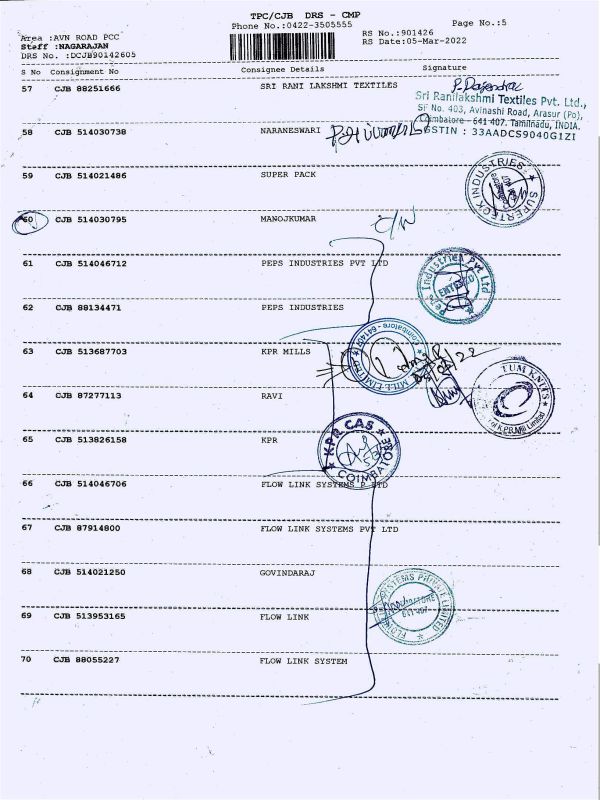 TPC/CJB DRS - CMP
Phone No.:0422-3505555
Page No.:5
Area :AVN ROAD PCC
Staff :NAGARAJAN
DRS No. :DCJB90142605
RS No.:901426
RS Date:05-Mar-2022
S No Consignment No Consignee Details Signature
57 CJB 88251666 SRI RANI LAKSHMI TEXTILES
P. Rajendran
Sri Ranilakshmi Textiles Pvt. Ltd.,
SF No. 403, Avinashi Road, Arasur (Po),
Coimbatore - 641 407. Tamilnadu, INDIA.
GSTIN : 33AADCS9040G1ZI
58 CJB 514030738 NARANESWARI
59 CJB 514021486 SUPER PACK
SUPERTECK INDUSTRIES
60 CJB 514030795 MANOJKUMAR
C/N
61 CJB 514046712 PEPS INDUSTRIES PVT LTD
Peps Industries Pvt Ltd
ENTERED
62 CJB 88134471 PEPS INDUSTRIES
63 CJB 513687703 KPR MILLS
MILL LIMITED Coimbatore - 641407
64 CJB 87277113 RAVI
of K.P.R.Mill Limited
65 CJB 513826158 KPR
KPR CAS
COIMBATORE
66 CJB 514046706 FLOW LINK SYSTEMS P LTD
67 CJB 87914800 FLOW LINK SYSTEMS PVT LTD
68 CJB 514021250 GOVINDARAJ
SYSTEMS PRIVATE LIMITED
641 407
69 CJB 513953165 FLOW LINK
70 CJB 88055227 FLOW LINK SYSTEM